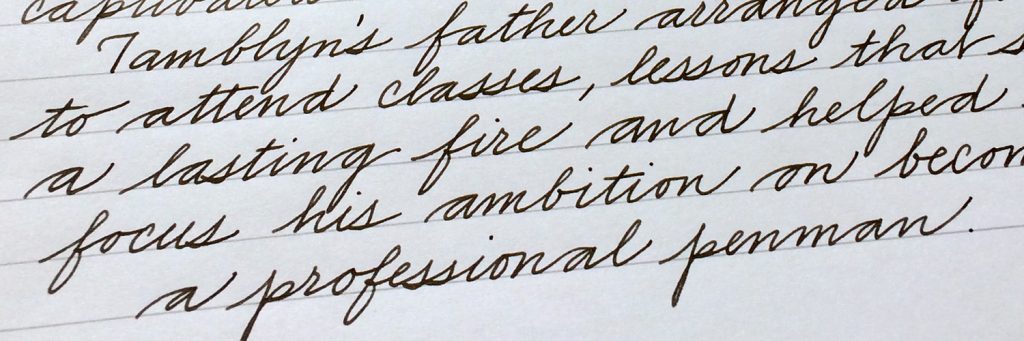 Tamblyn's father arranged
to attend classes, lessons that
a lasting fire and helped
focus his ambition on
a professional penman.